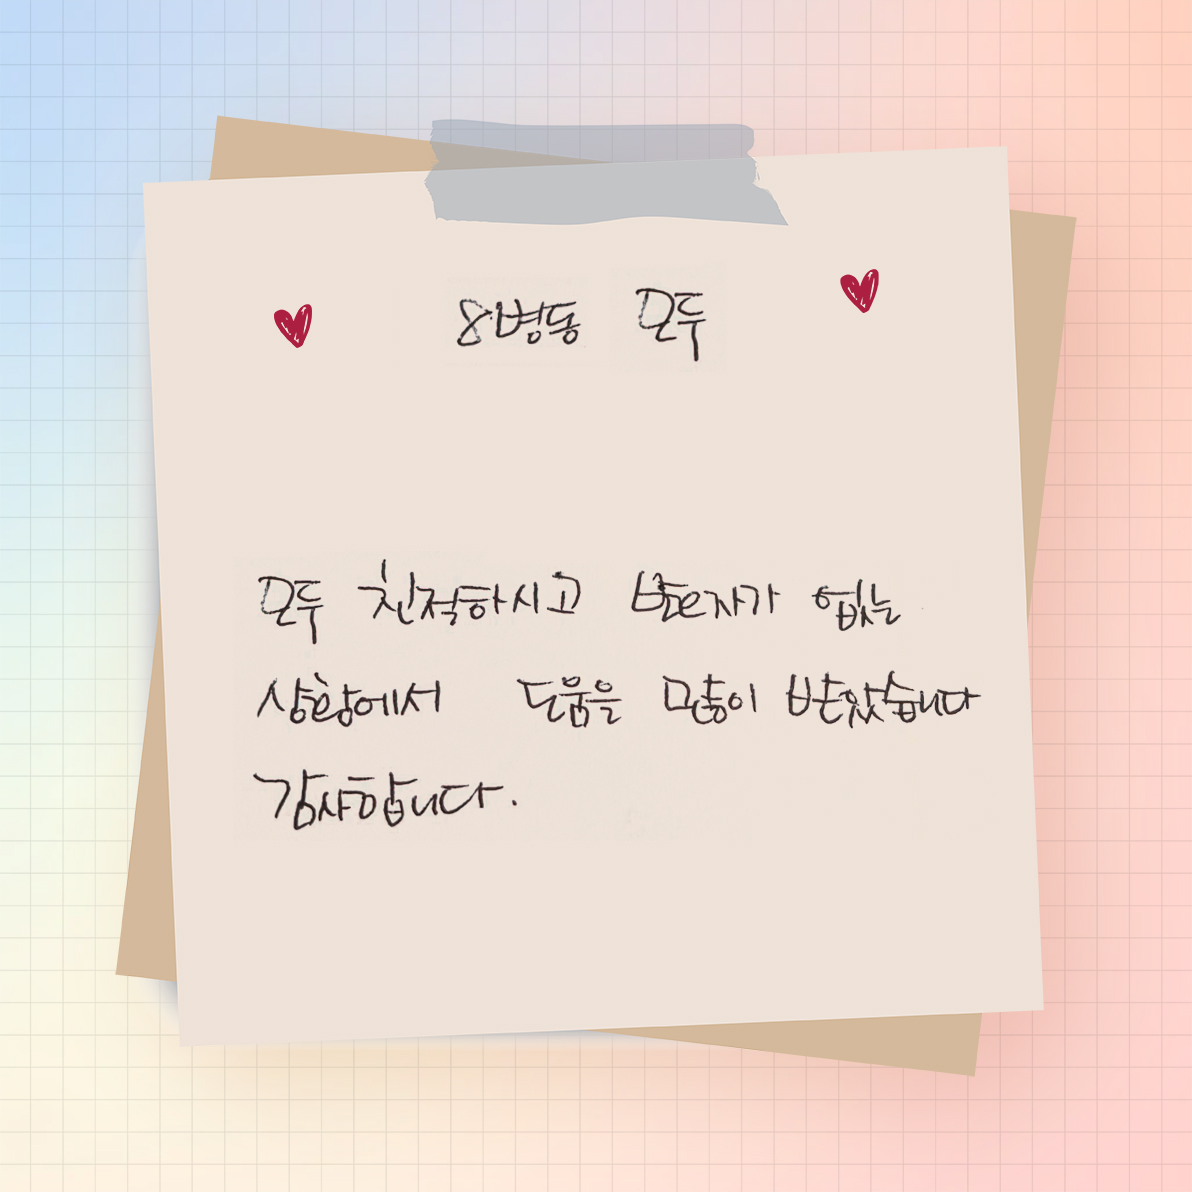 8병동 모두
모두 친절하시고 보호자가 없는
상황에서 도움을 많이 받았습니다
감사합니다.